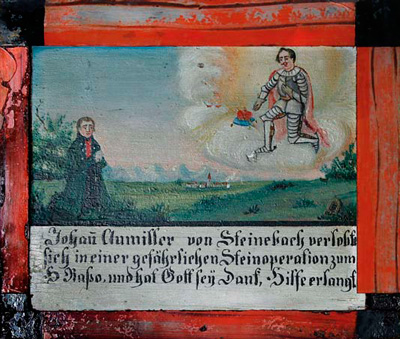 Johañ Aumiller von Steinebach verlobte
sich in einer gefährlichen Steinoperation zum
H Raßo, und hat Gott sey Dank, Hilfe erlangt